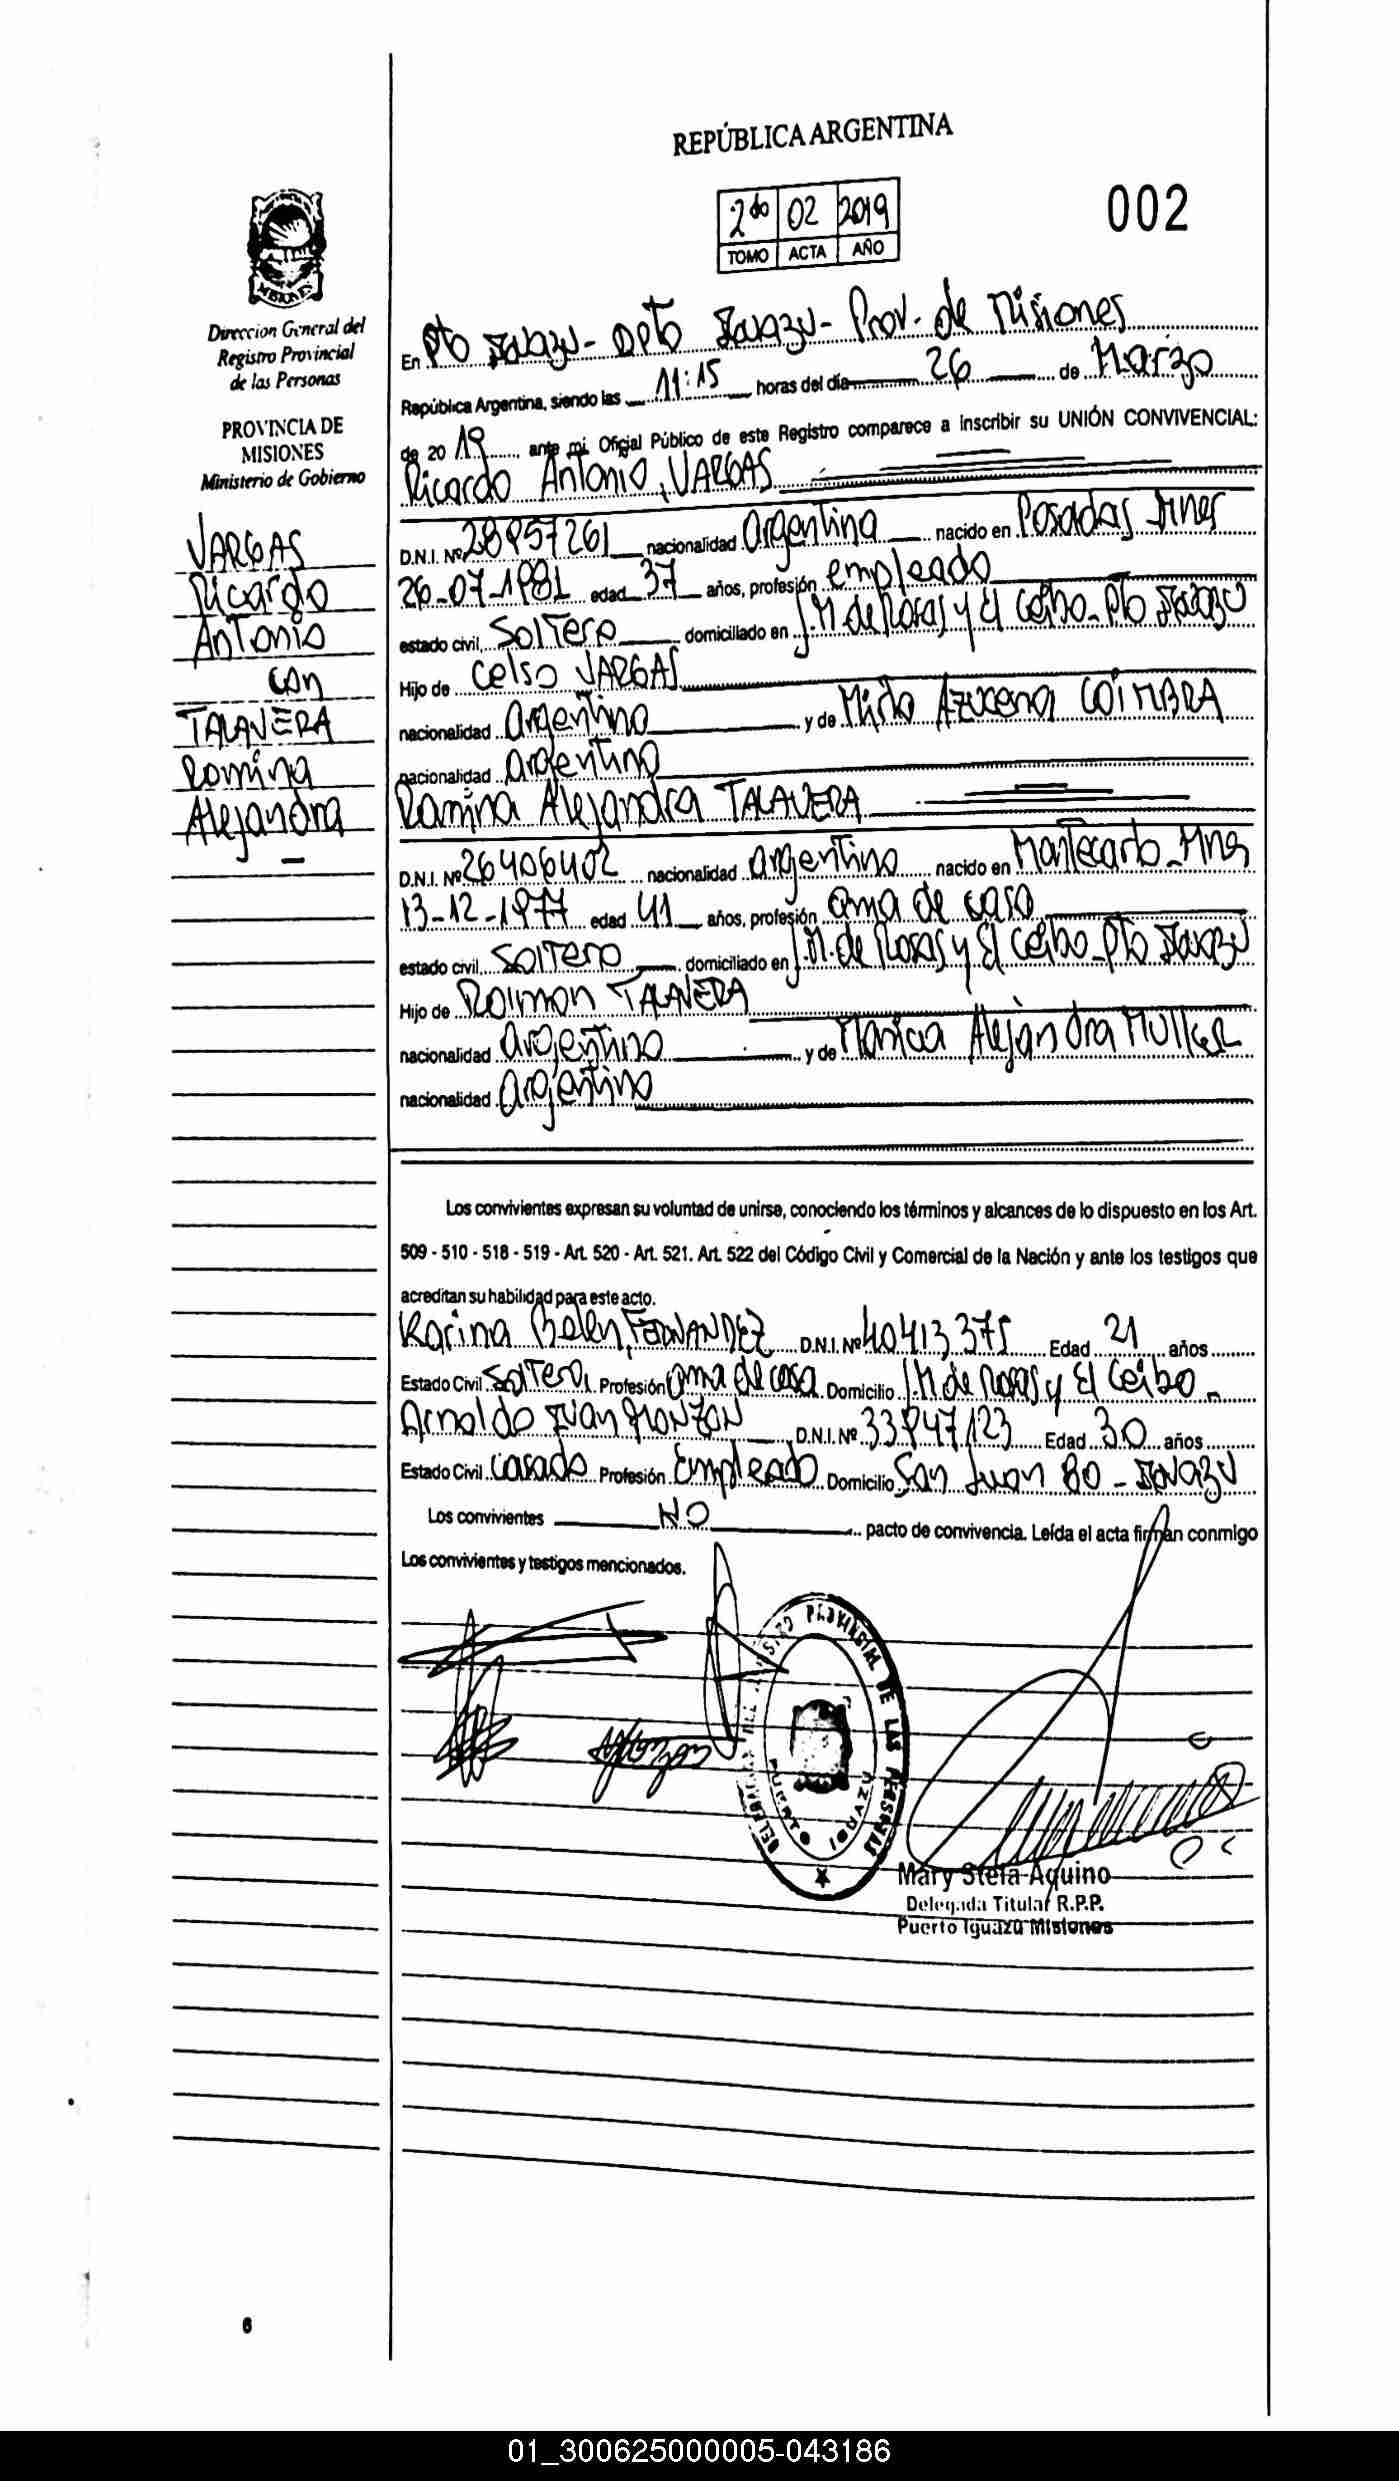 REPÚBLICA ARGENTINA
2do 02 2019
TOMO ACTA AÑO
002
Direccion General del
Registro Provincial
de las Personas
PROVINCIA DE
MISIONES
Ministerio de Gobierno
VARGAS
Ricardo
Antonio
con
TALAVERA
Romina
Alejandra
En Pto Iguazu - Dpto Iguazu - Prov. de Misiones
República Argentina, siendo las 11:15 horas del día 26 de Marzo
de 20 19, ante mi, Oficial Público de este Registro comparece a inscribir su UNIÓN CONVIVENCIAL:
Ricardo Antonio, VARGAS
D.N.I. Nº 28957261 nacionalidad Argentina nacido en Posadas Mnes
26-07-1981 edad 37 años, profesión empleado
estado civil, Soltero domiciliado en J.M de Rosas y El Ceibo - Pto Iguazu
Hijo de Celso VARGAS
nacionalidad Argentino y de Azucena COIMBRA
nacionalidad Argentino
Romina Alejandra TALAVERA
D.N.I. Nº 26406402 nacionalidad Argentino nacido en Montecarlo - Mnes
13-12-1977 edad 41 años, profesión ama de casa
estado civil, Soltero domiciliado en J.M. de Rosas y El Ceibo - Pto Iguazu
Hijo de Raimon TALAVERA
nacionalidad Argentino y de Monica Alejandra MULLER
nacionalidad Argentino
Los convivientes expresan su voluntad de unirse, conociendo los términos y alcances de lo dispuesto en los Art.
509 - 510 - 518 - 519 - Art. 520 - Art. 521. Art. 522 del Código Civil y Comercial de la Nación y ante los testigos que
acreditan su habilidad para este acto.
Karina Belen, FERNANDEZ D.N.I. Nº 40413375 Edad 21 años
Estado Civil Soltera Profesión ama de casa Domicilio J.M de Rosas y El Ceibo
Arnoldo Ivan MONZON D.N.I. Nº 33947123 Edad 30 años
Estado Civil Casado Profesión Empleado Domicilio San Juan Bo - Iguazu
Los convivientes NO pacto de convivencia. Leída el acta firman conmigo
Los convivientes y testigos mencionados.
REGISTRO PROVINCIAL DE LAS PERSONAS
PUERTO IGUAZU
Mary Stela Aquino
Delegada Titular R.P.P.
Puerto Iguazú Misiones
6
01_300625000005-043186